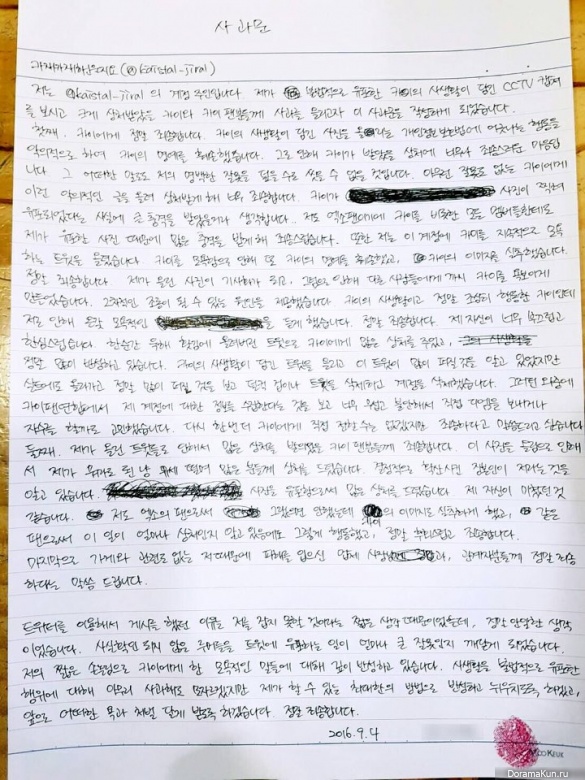 사과문
(@kaistal-jiral)
저는 @kaistal-jiral의 계정 주인입니다. 제가 불법적으로 유포한 카이의 사생활이 담긴 CCTV 캡쳐
를 보시고 크게 상처받았을 카이와 카이 팬분들께 사과를 드리고자 이 사과문을 작성하게 되었습니다.
첫째, 카이에게 정말 죄송합니다. 카이의 사생활이 담긴 사진을 저는 개인정보보호법에 어긋나는 행동을
악의적으로 하여 카이의 명예를 훼손했습니다. 그로 인해 카이가 받았을 상처에 너무나 죄송스러운 마음입
니다. 그 어떠한 말로도 저의 명백한 잘못을 덮을 수는 없을 것입니다. 아무런 잘못도 없는 카이에게
이런 악의적인 글을 올려 상처받게 해 너무 죄송합니다. 카이가 사진이 찍혀
유포되었다는 사실에 큰 충격을 받았을거라 생각합니다. 저도 카이를 비롯한 모든 멤버들한테도
제가 유포한 사진 때문에 많은 충격을 받게 해 죄송스럽습니다. 또한 저는 이 계정에 카이를 지속적으로 모욕
하는 트윗을 올렸습니다. 카이를 모욕함으로 인해 또 카이의 명예를 훼손했고, 카이의 이미지를 실추했습니다.
정말 죄송합니다. 제가 올린 사진이 기사화가 되고, 그럼으로 인해 다른 사람들에게까지 카이를
만들었습니다. 원인을 제공했습니다. 카이의 사생활이고 정말 조심히 행동한 카이인데
저로 인해 온갖 모욕적인 을 듣게 했습니다. 정말 죄송합니다. 제 자신이 너무 부끄럽고
한심스럽습니다. 한순간 올려버린 트윗으로 카이에게 많은 상처를 주었고,
정말 많이 반성하고 있습니다. 카이의 사생활이 담긴 트윗을 올리고 이 트윗이 많이 퍼질 것을 알고 있었지만
실트에도 올라가고 정말 많이 퍼진 것을 보고 덜컥 겁이나 트윗을 삭제하고 계정을 삭제했습니다. 그러던 와중에
카이팬연합에서 제 계정에 대한 정보를 수집한다는 것을 보고 너무 무섭고 불안해서 직접 디엠을 보내거나
자수를 할까도 고민했습니다. 다시 한번 더 카이에게 직접 전할 수는 없겠지만 죄송하다고 말씀드리고 싶습니다.
둘째, 제가 올린 트윗들로 인해서 많은 상처를 받으셨을 카이 팬분들께 죄송합니다. 이 사진을 올림으로 인해
서 제가
알고 있습니다. 사진을 유포함으로써 많은 상처를 드렸습니다. 제 자신이 미쳤던 것
같습니다. 저도 엑소의 팬으로써 그랬으면 안됐는데 카이의 이미지를 실추하게 했고, 같은
팬으로써 이 일이 얼마나 상처인지 알고 있음에도 그렇게 행동했고, 정말 죄송합니다.
마지막으로 가게와 관련도 없는 저 때문에 피해를 입으신 업체 관계자분들께 정말 죄송
하다는 말씀 드립니다.
트위터를 이용해서 게시를 했던 이유는 저를 잡지 못할 것이라는 짧은 생각 때문이었는데, 정말 안일한 생각
이었습니다. 사실확인 되지 않은 루머들을 트윗에 유포하는 일이 얼마나 큰 잘못인지 깨닫게 되었습니다.
저의 짧은 손놀림으로 카이에게 한 모욕적인 말들에 대해 깊이 반성하고 있습니다. 사생활을 불법적으로 유포한
행위에 대해 아무리 사과해도 모자르겠지만 제가 할 수 있는 최대한의 방법으로 반성하고 뉘우치도록 하겠고,
앞으로 어떠한 욕과 처벌 달게 받도록 하겠습니다. 정말 죄송합니다.
2016.9.4
DoramaKun.ru